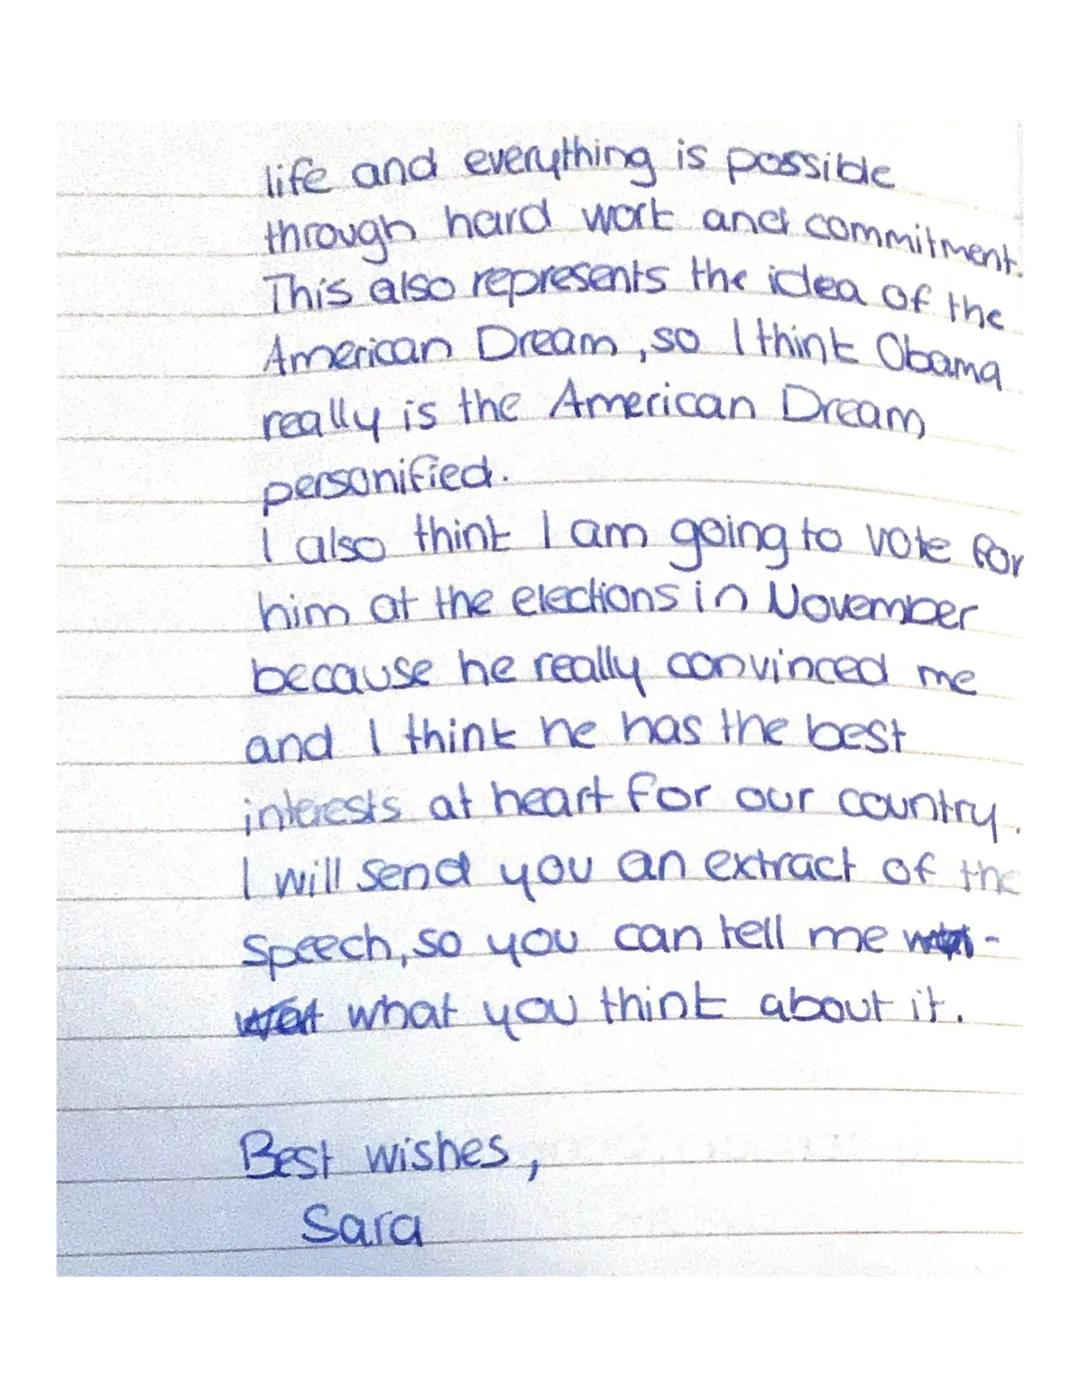 life and everything is possible
through hard work and commitment.
This also represents the idea of the
American Dream, so I think Obama
really is the American Dream
personified.
I also think I am going to vote for
him at the elections in November
because he really convinced me
and I think he has the best
interests at heart for our country.
I will send you an extract of the
speech, so you can tell me
what you think about it.
Best wishes,
Sara